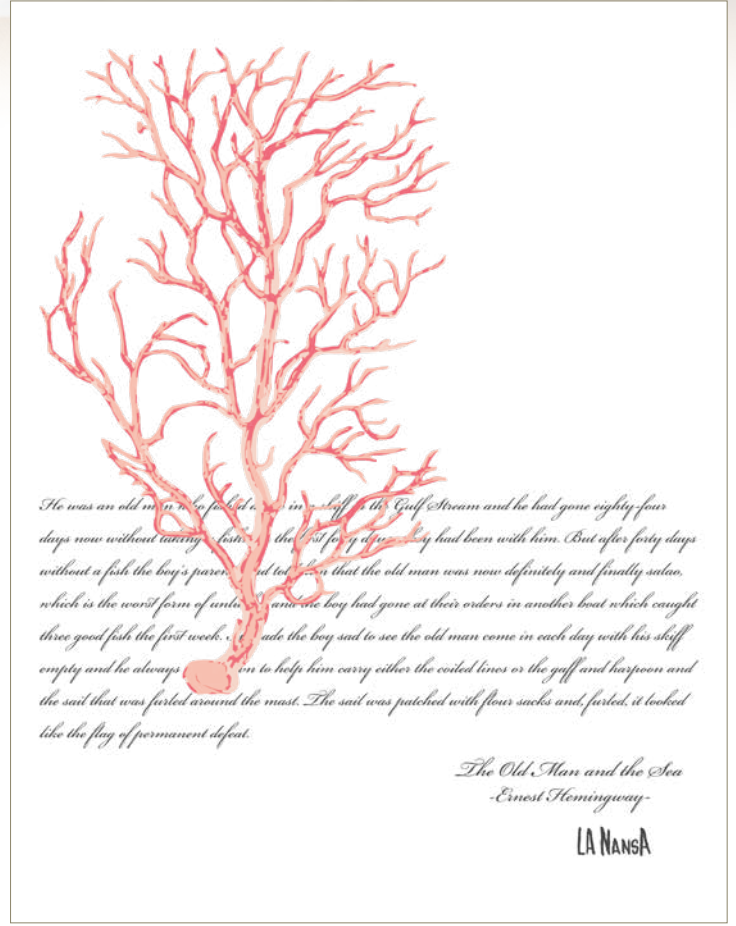 He was an old man who fished alone in a skiff in the Gulf Stream and he had gone eighty-four
days now without taking a fish. In the first forty days a boy had been with him. But after forty days
without a fish the boy's parents had told him that the old man was now definitely and finally salao,
which is the worst form of unlucky, and the boy had gone at their orders in another boat which caught
three good fish the first week. It made the boy sad to see the old man come in each day with his skiff
empty and he always went down to help him carry either the coiled lines or the gaff and harpoon and
the sail that was furled around the mast. The sail was patched with flour sacks and, furled, it looked
like the flag of permanent defeat.
The Old Man and the Sea
-Ernest Hemingway-
LA NANSA